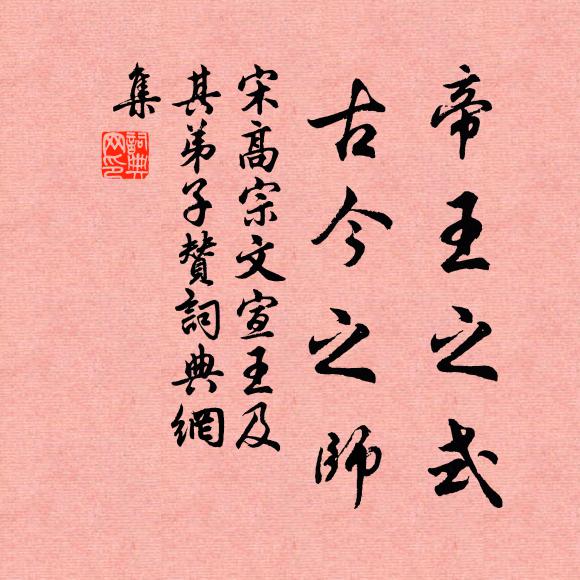 帝王之式
古今之師
宋高宗文宣王及
其弟子贊詞典網
集
詞典網印